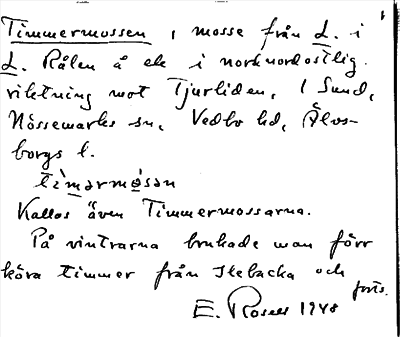 Timmermossen, mosse från L. i
L. Rålen å ek i nordnordostlig
riktning mot Tjurliden, 1 Sund,
Nössemarks sn, Vedbo hd, Älvs-
borgs l.
tìmərmósən
Kallas även Timmermossarna.
På vintrarna brukade man förr
köra timmer från Stebacka och
forts.
E. Rosell 1948